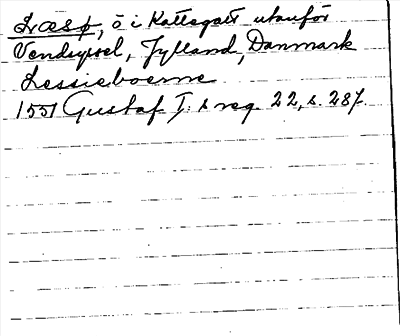 Læsø, ö i Kattegatt utanför
Vendsyssel, Jylland, Danmark
Lessieboerne
1551 Gustaf I:s reg. 22, s. 287.